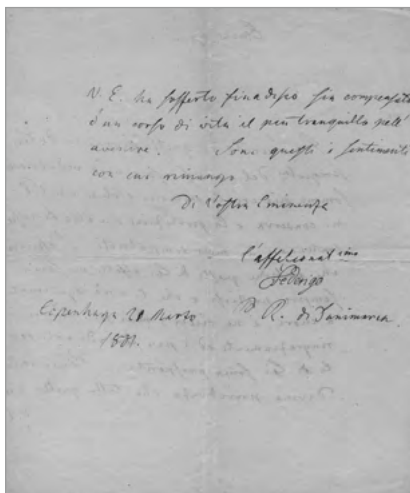 V. E. ha sofferto finadesso sia compensato
d'un corso di vita il più tranquillo nell'
avenire. Sono questi i sentimenti
con cui rimango
Di Vostra Eminenza
l'affezionat imo
Federigo
P. R. di Danimarca.
Copenhaga 28 Marzo